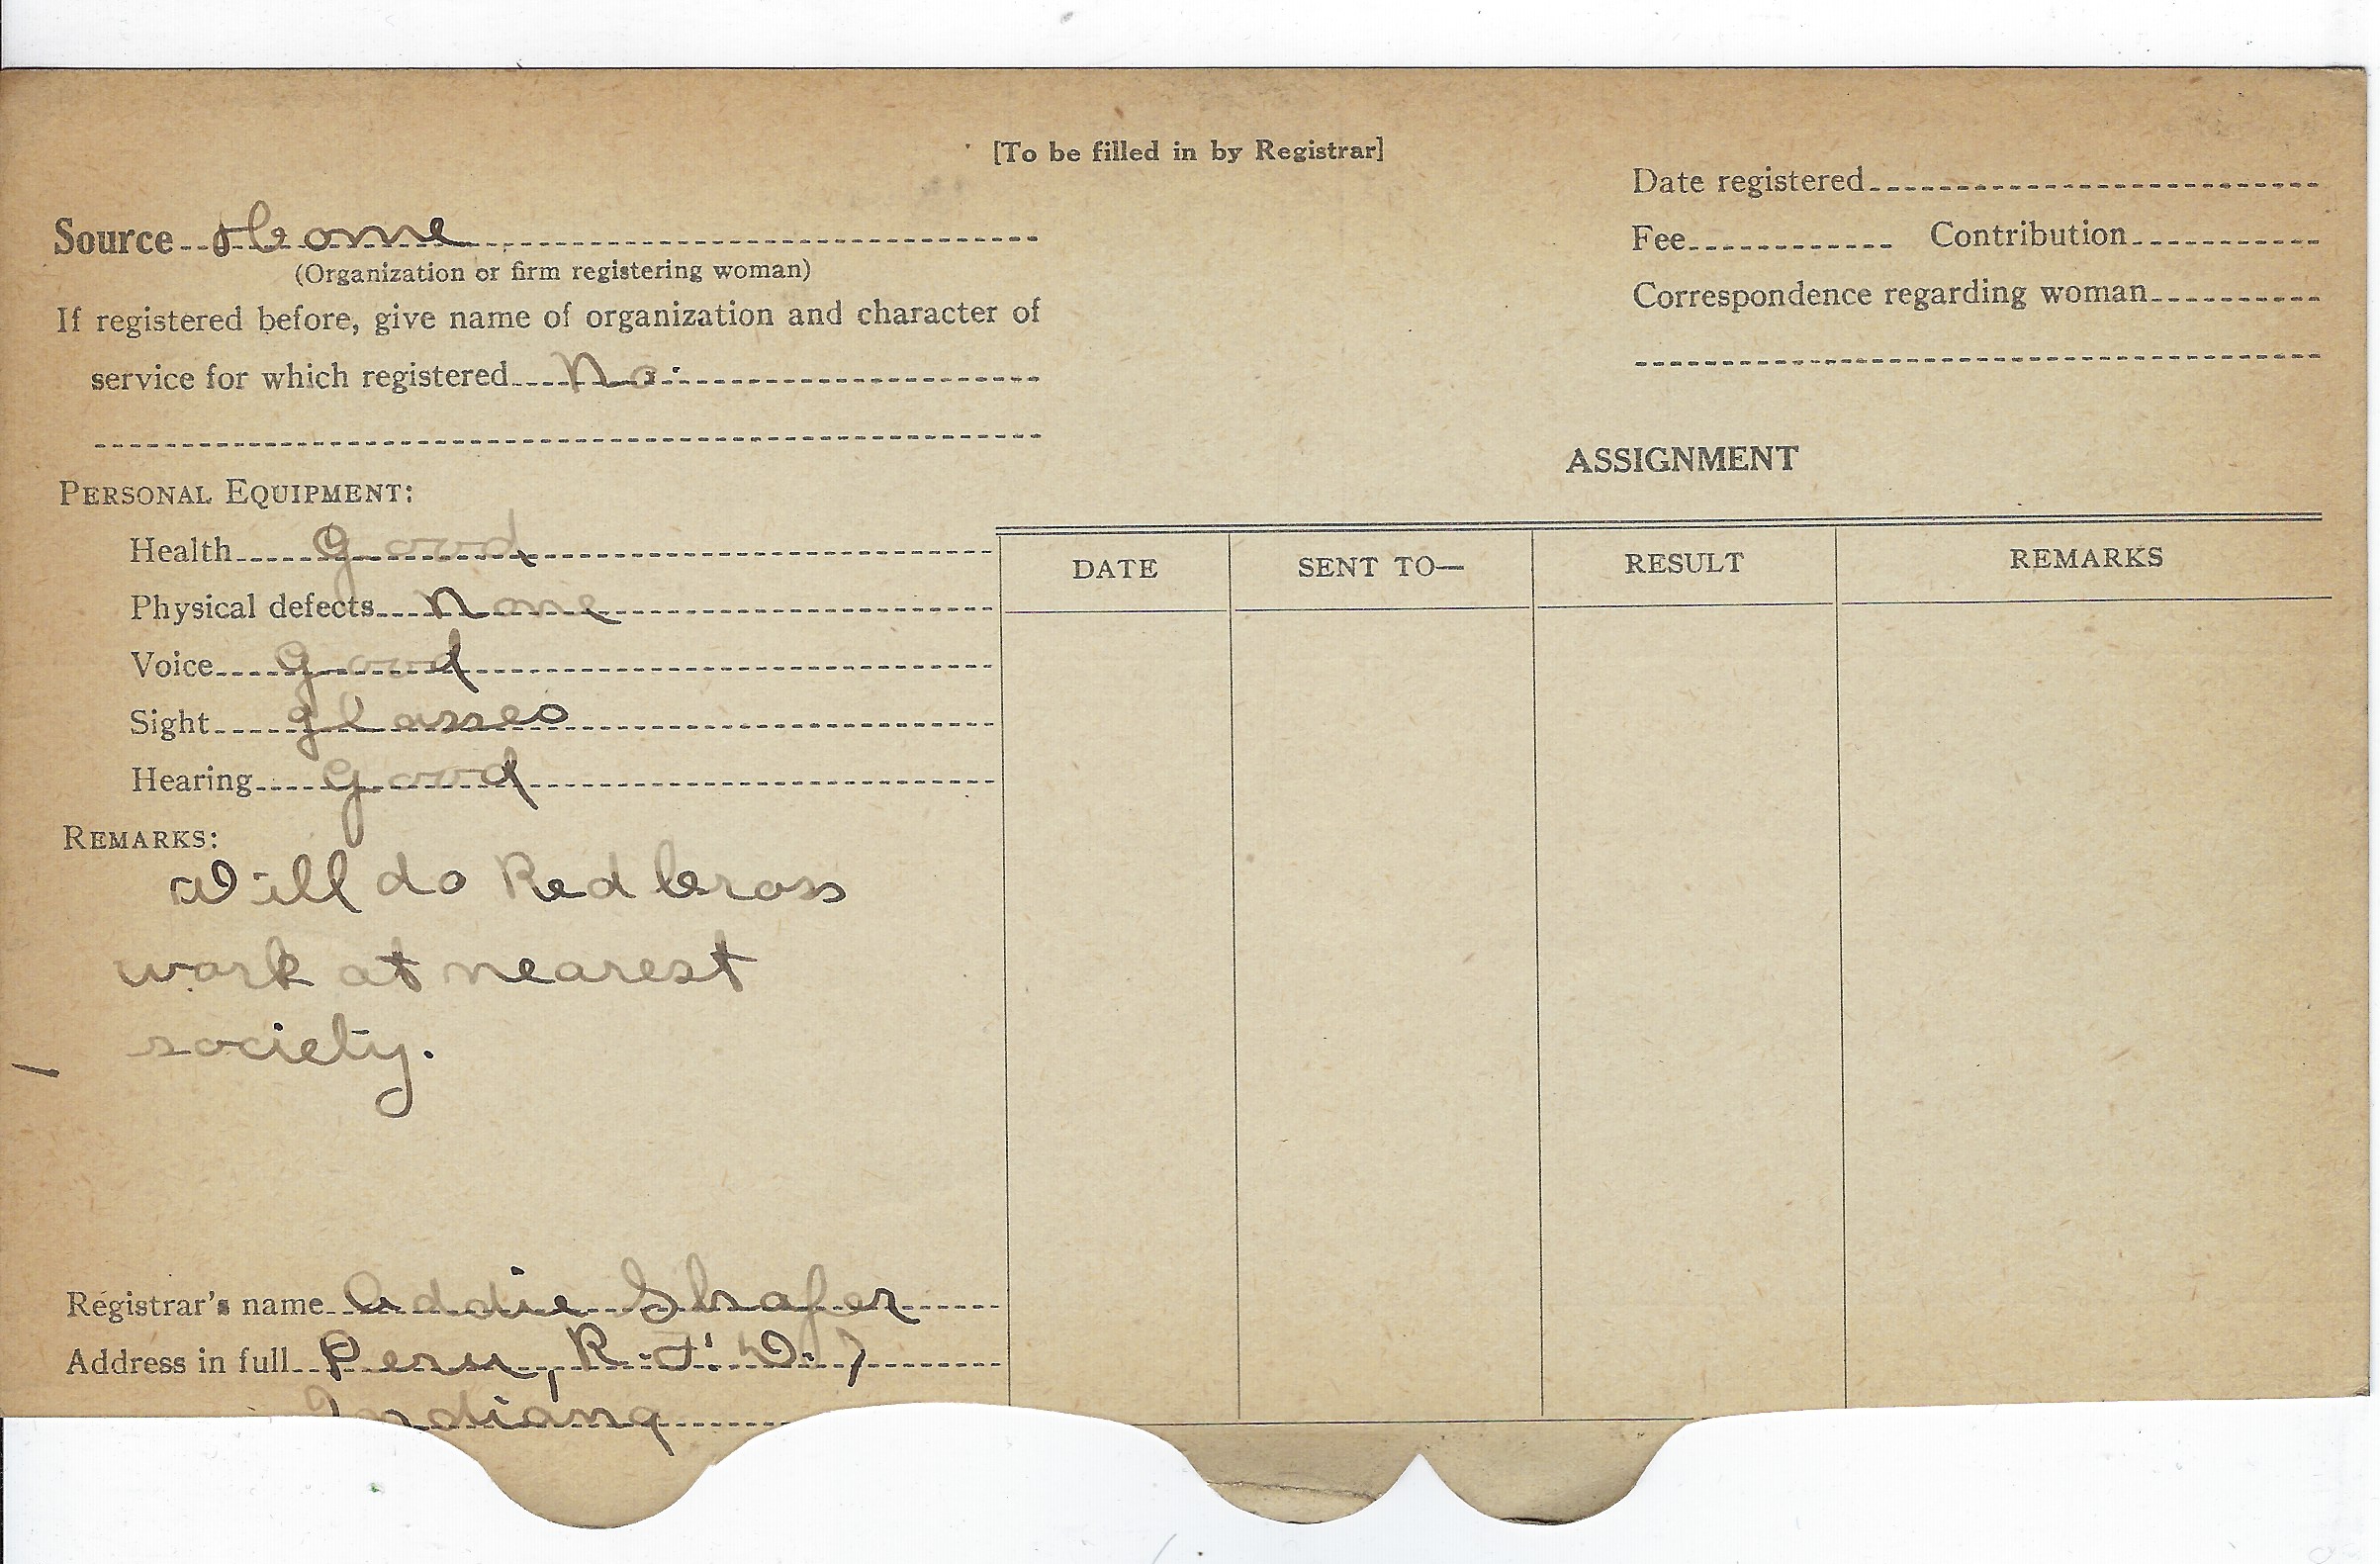 [To be filled in by Registrar]
Date registered
Source Home
(Organization or firm registering woman)
Fee Contribution
If registered before, give name of organization and character of
Correspondence regarding woman
service for which registered No.
ASSIGNMENT
PERSONAL EQUIPMENT:
Health Good
Physical defects None
Voice Good
Sight glasses
Hearing Good
DATE SENT TO— RESULT REMARKS
REMARKS:
Will do Red Cross
work at nearest
society.
Registrar's name Addie Shafer
Address in full Peru, R.F.D. 7
Indiana